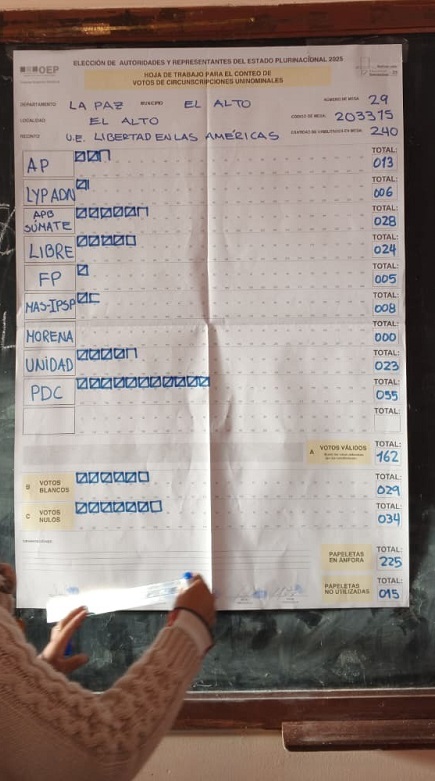 OEP
ELECCIÓN DE AUTORIDADES Y REPRESENTANTES DEL ESTADO PLURINACIONAL 2025
HOJA DE TRABAJO PARA EL CONTEO DE
VOTOS DE CIRCUNSCRIPCIONES UNINOMINALES
DEPARTAMENTO: LA PAZ MUNICIPIO EL ALTO NÚMERO DE MESA: 29
LOCALIDAD: EL ALTO CÓDIGO DE MESA: 203315
RECINTO: U.E. LIBERTAD EN LAS AMÉRICAS CANTIDAD DE HABILITADOS EN MESA: 240
AP TOTAL: 013
LYP ADN TOTAL: 006
APB SÚMATE TOTAL: 028
LIBRE TOTAL: 024
FP TOTAL: 005
MAS-IPSP TOTAL: 008
MORENA TOTAL: 000
UNIDAD TOTAL: 023
PDC TOTAL: 055
TOTAL:
A VOTOS VÁLIDOS TOTAL: 162
B VOTOS BLANCOS TOTAL: 029
C VOTOS NULOS TOTAL: 034
PAPELETAS EN ÁNFORA TOTAL: 225
PAPELETAS NO UTILIZADAS TOTAL: 015